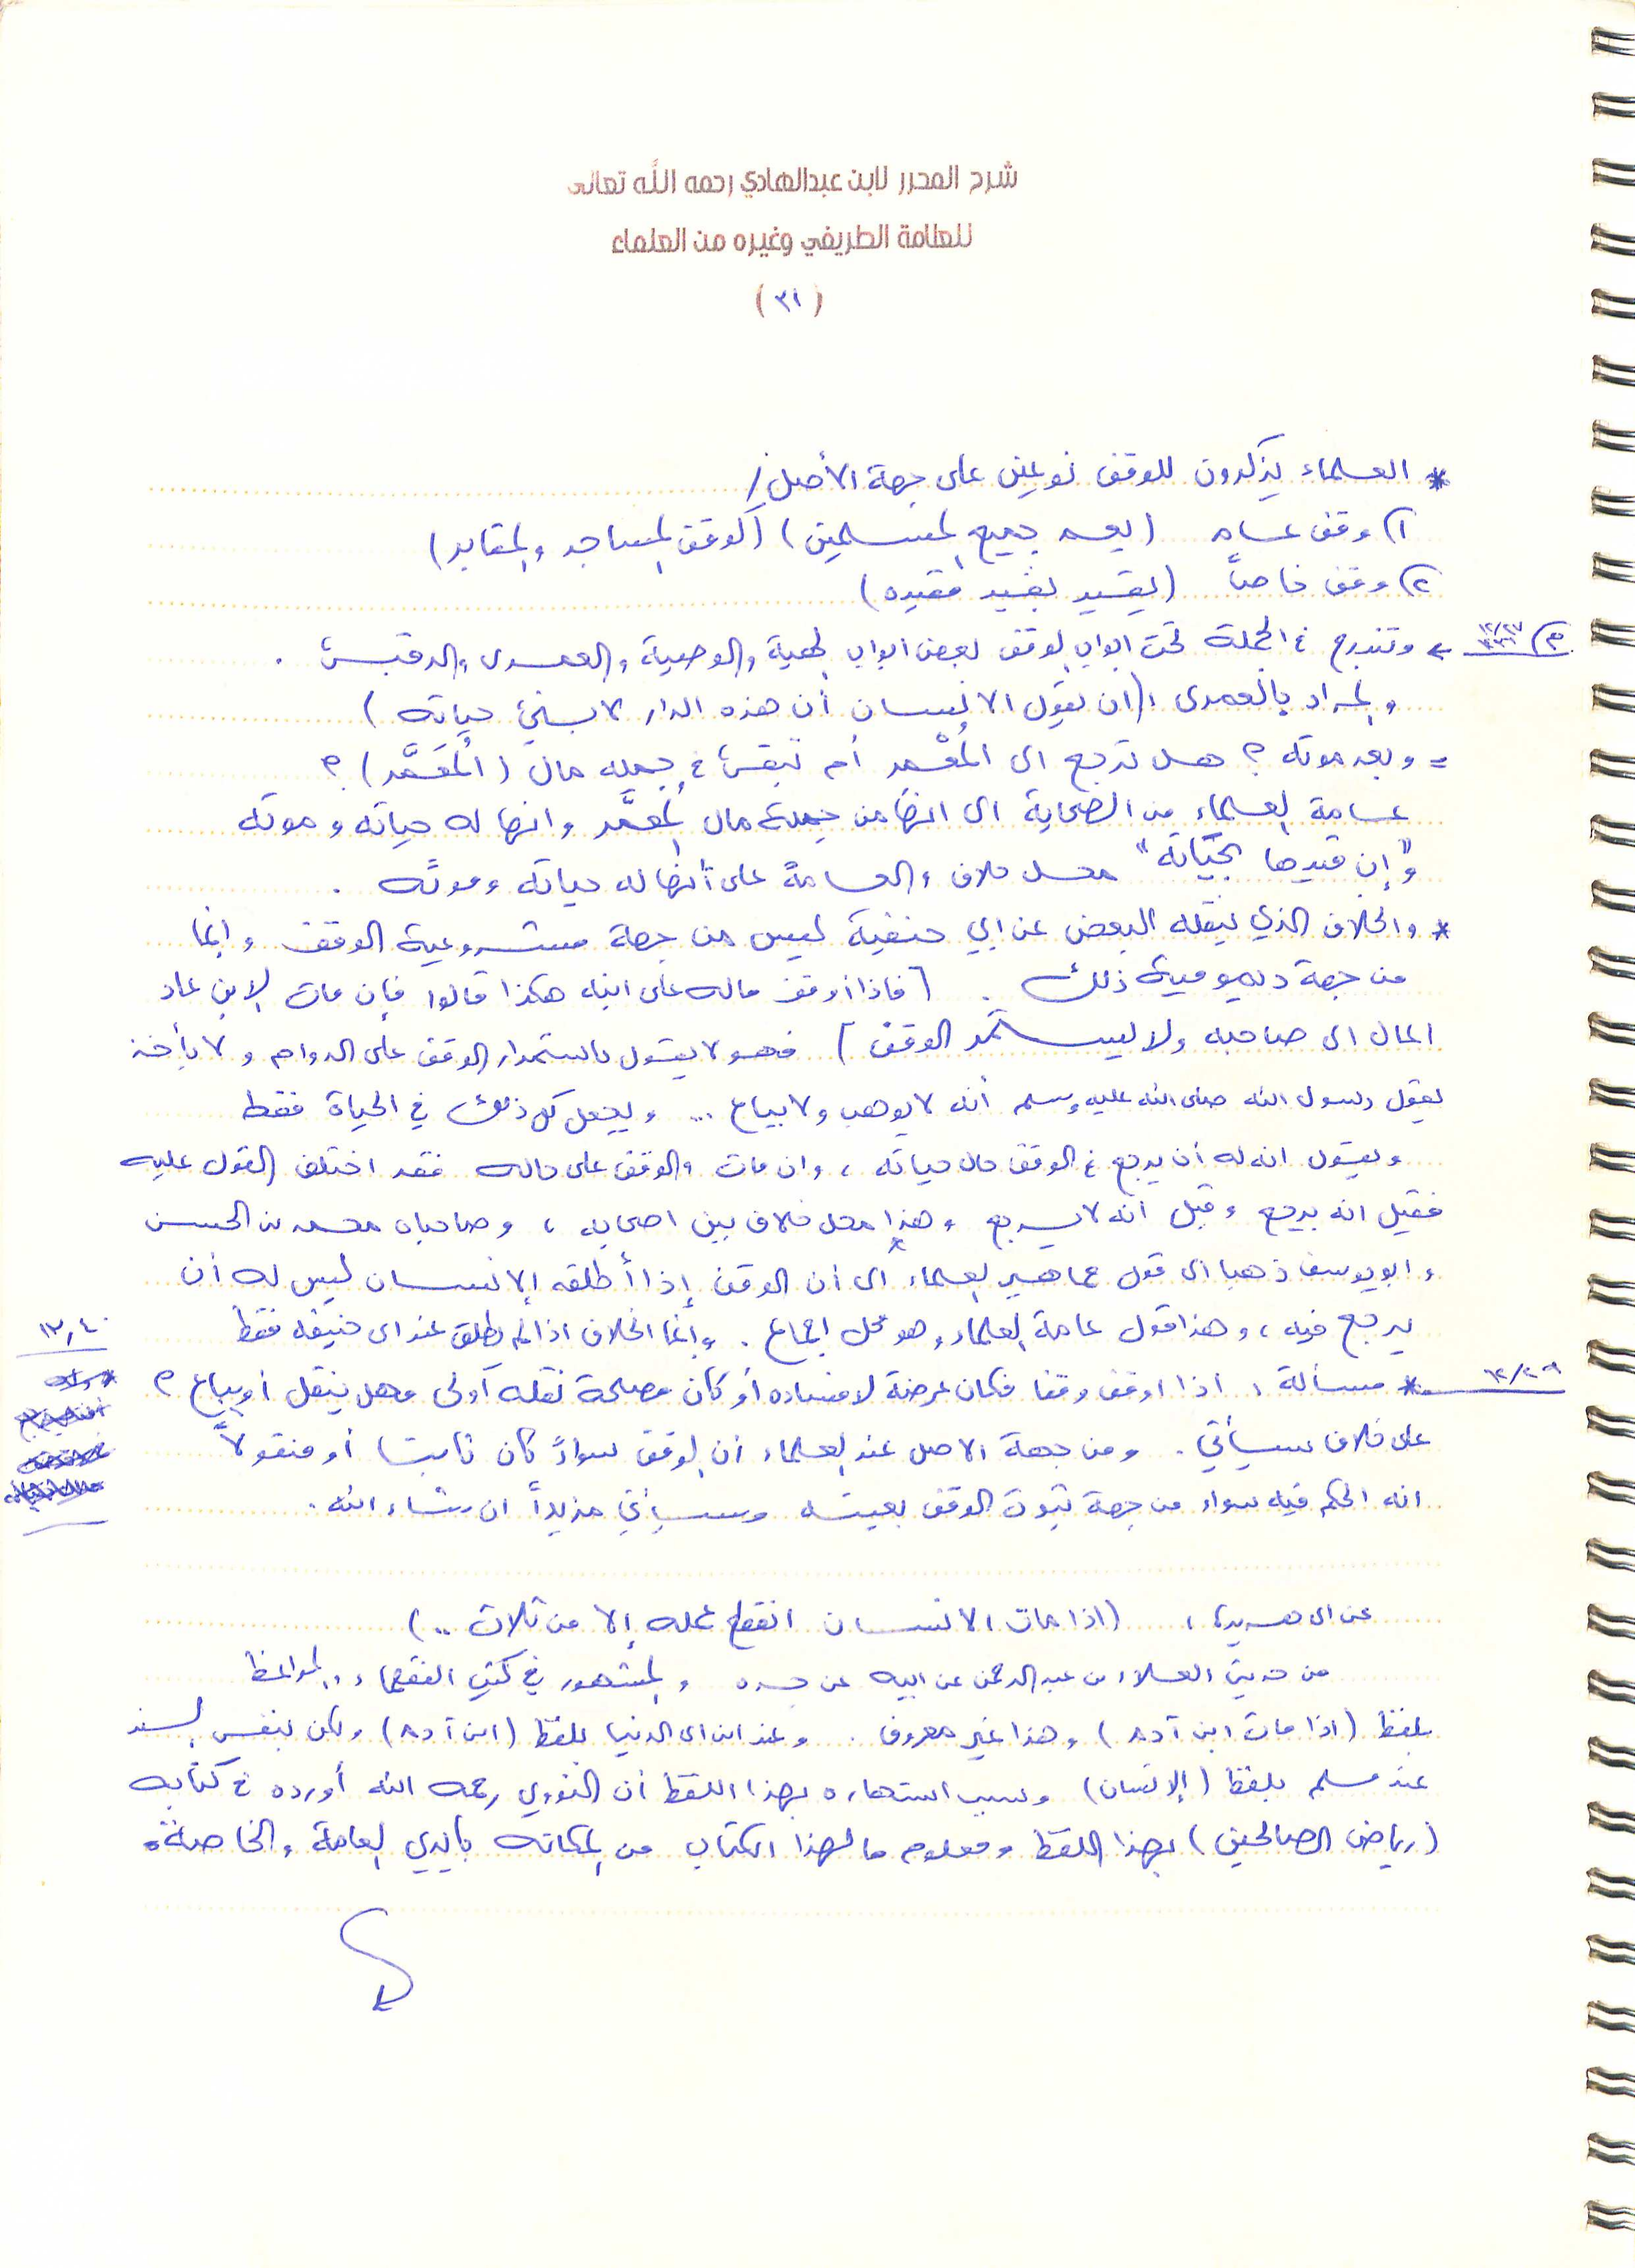 شرح المحرر لابن عبدالهادي رحمه الله تعالى
للعلامة الطريفي وغيره من العلماء
(٣١)
* العلماء يذكرون للوقف نوعين على جهة الأصل /
١) وقف عام (يعم جميع المسلمين) (كوقف المساجد والمقابر)
٢) وقف خاصاً (يقيد بقيد مقيده)
وتندرج في الجملة تحت ابواب الوقف بعض ابواب الهبة والوصية والعمرى والرقبى .
والمراد بالعمرى : (ان يقول الانسان أن هذه الدار لابني حياته)
= وبعد موته ؟ هل ترجع الى المُعْمِر أم تبقى في جملة مال (المُعَمَّر) ؟
عامة العلماء من الصحابة الى انها من جملة مال المُعمَّر وانها له حياته وموته
"وإن قيدها بحياته" محل خلاف والعامة على أنها له حياته وموته .
* والخلاف الذي ينقله البعض عن ابي حنيفة ليس من جهة مشروعية الوقف وانما
من جهة ديمومية ذلك . [فاذا أوقف ماله على ابنه هكذا قالوا فإن مات الابن عاد
المال الى صاحبه ولا يستمر الوقف] فهو لا يقول باستمرار الوقف على الدوام ولا يأخذ
بقول رسول الله صلى الله عليه وسلم أنه لا يوهب ولا يباع .. ويجعل كل ذلك في الحياة فقط
ويقول انه له أن يرجع في الوقف حال حياته ، وان مات والوقف على حاله فقد اختلف القول عليه
فقيل انه يرجع وقيل أنه لا يرجع وهذا محل خلاف بين اصحابه ، وصاحباه محمد بن الحسن
وابو يوسف ذهبا الى قول جماهير العلماء الى أن الوقف إذا أطلقه الانسان ليس له أن
يرجع فيه ، وهذا قول عامة العلماء وهو محل اجماع . وإنما الخلاف اذا لم يطلق عند ابي حنيفه فقط
١٢,٤٠
١٢/٢٩
* مسألة : اذا اوقف وقفا فكان عرضة لافساده أو كان مصلحة نقله أولى فهل ينقل أو يباع ؟
على خلاف سيأتي . ومن جهة الاصل عند العلماء أن الوقف سواءً كان ثابتا أو منقولاً
انه الحكم فيه سواء من جهة ثبوت الوقف بعينه وسيأتي مزيداً ان شاء الله .
عن ابي هريرة : (اذا مات الانسان انقطع عمله إلا من ثلاث ..)
من حديث العلاء بن عبد الرحمن عن ابيه عن جده والمشهور في كتب الفقهاء والمواعظ
بلفظ (اذا مات ابن آدم) وهذا غير معروف . وعند ابن ابي الدنيا بلفظ (ابن آدم) ولكن بنفس السند
عند مسلم بلفظ (الإنسان) وسبب اشتهاره بهذا اللفظ أن النووي رحمه الله أورده في كتابه
(رياض الصالحين) بهذا اللفظ ومعلوم ما لهذا الكتاب من المكانه بأيدي العامة والخاصة .